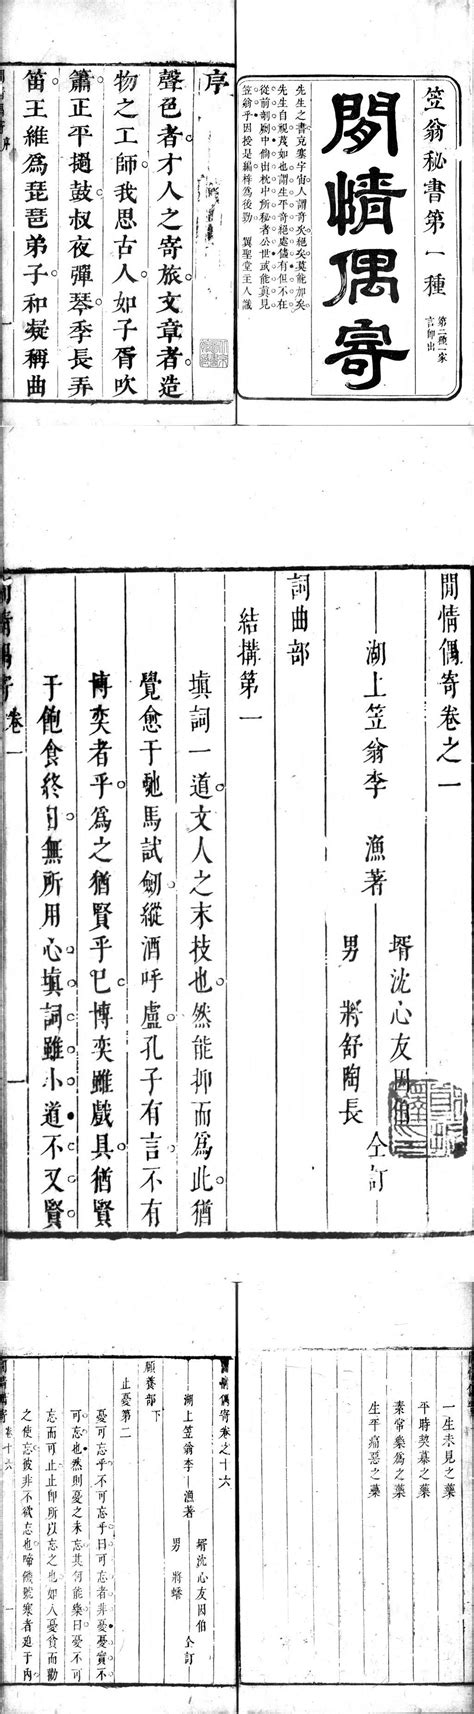 笠翁秘書第一種
第二種一家
言卽出
閒情偶寄
先生之書充塞宇宙人謂奇矣絕矣莫能加矣
先生自視蔑如也謂生平奇絕處儘有但不在
從前剞劂中倘出枕中所秘者公世或能眞見
笠翁乎因授是編梓爲後勁　翼聖堂主人識
序
聲色者才人之寄旅文章者造
物之工師我思古人如子胥吹
簫正平撾鼓叔夜彈琴季長弄
笛王維爲琵琶弟子和凝稱曲
閒情偶寄卷之一
湖上笠翁李　漁著
壻沈心友因伯
男　將舒陶長
仝訂
詞曲部
結搆第一
填詞一道文人之末技也然能抑而爲此猶
覺愈于馳馬試劒縱酒呼盧孔子有言不有
博奕者乎爲之猶賢乎巳博奕雖戲具猶賢
于飽食終日無所用心填詞雖小道不又賢
閒情偶寄　卷一　一
一生未見之藥
平時契慕之藥
素常樂爲之藥
生平痛惡之藥
閒情偶寄卷之十六
湖上笠翁李　漁著
壻沈心友因伯
男　將蟠
仝訂
頤養部下
止憂第二
憂可忘乎不可忘乎曰可忘者非憂憂實不
可忘也然則憂之未忘其何能樂曰憂不可
忘而可止止卽所以忘之也如人憂貧而勸
之使忘彼非不欲忘也啼饑號寒者迫于內
閒情偶寄　卷十六　一